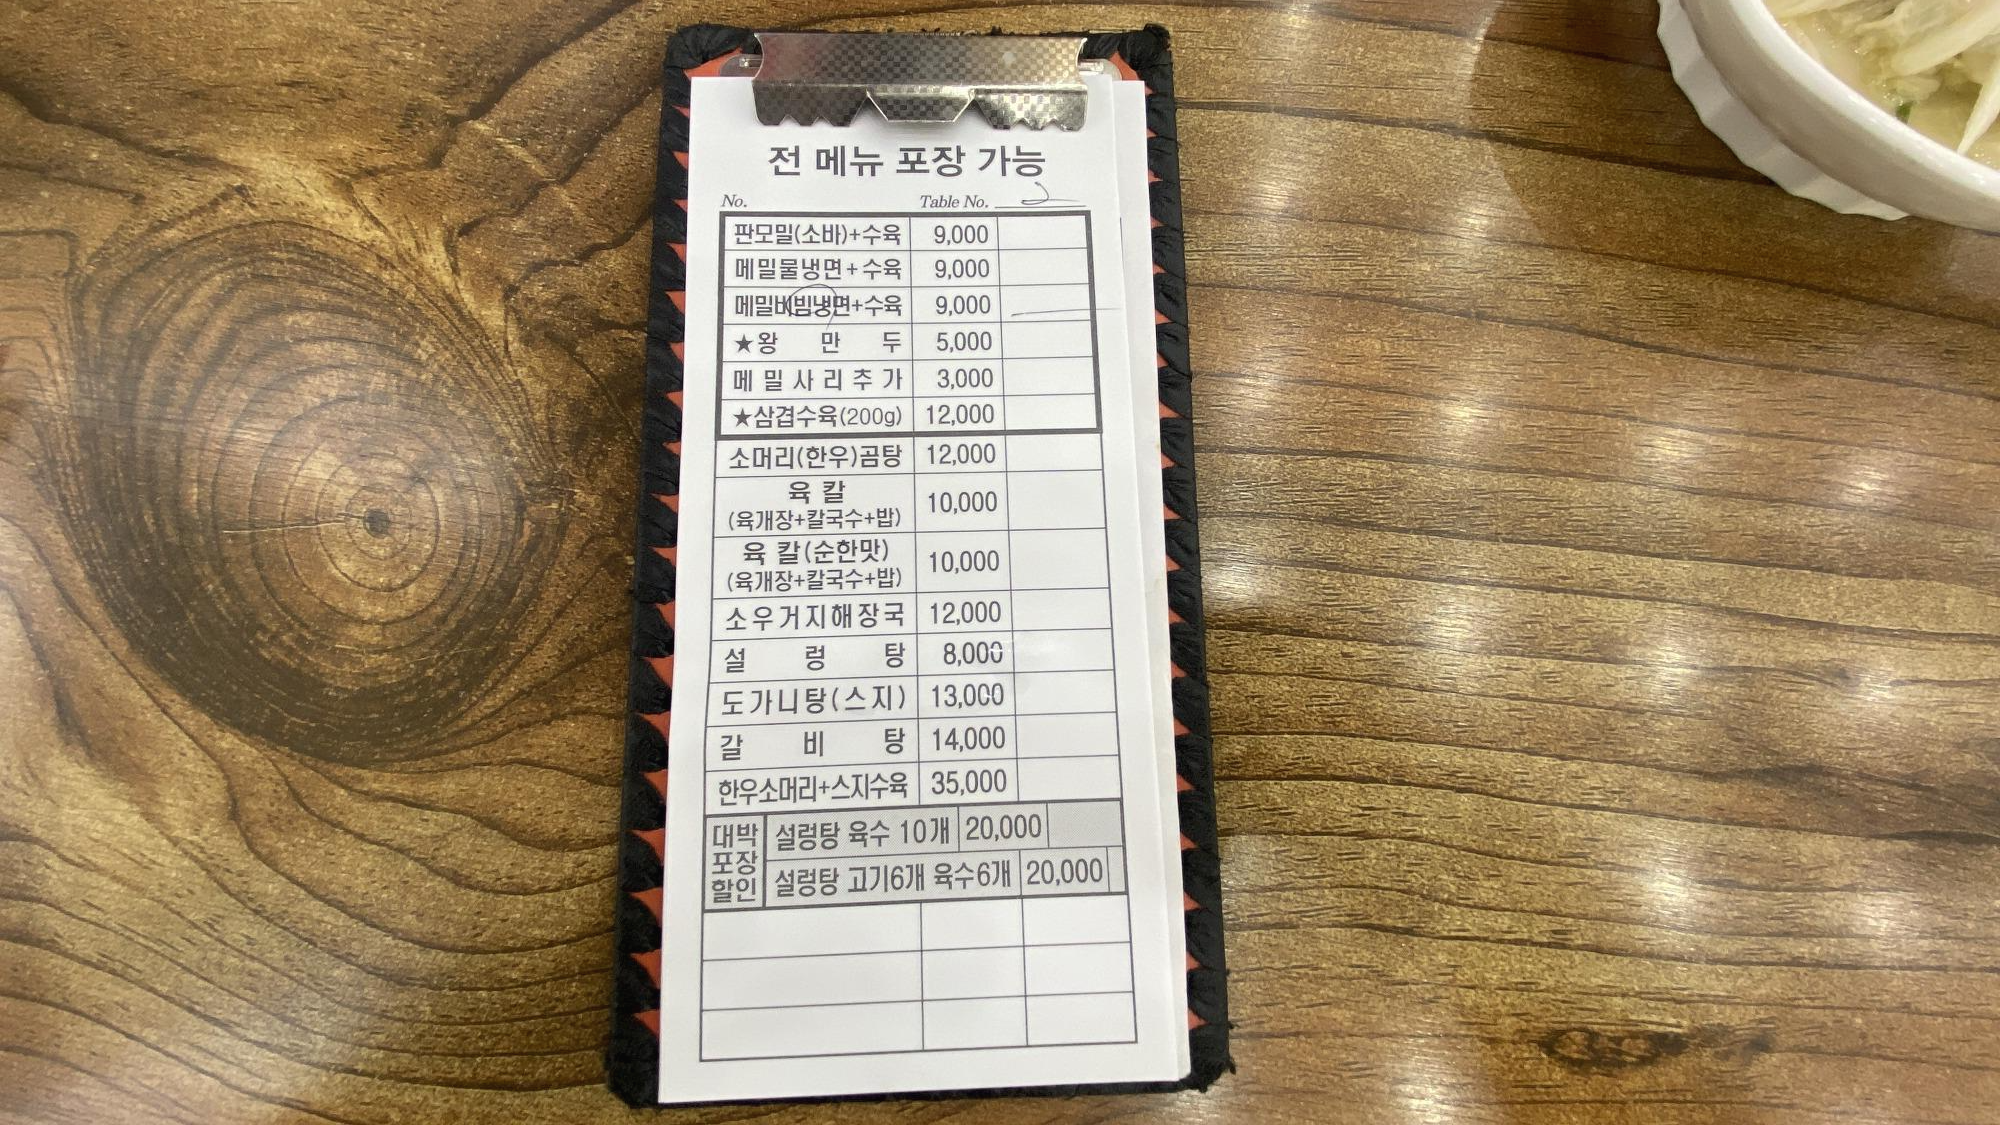 전 메뉴 포장 가능
No. Table No. 2
판모밀(소바)+수육 9,000
메밀물냉면+수육 9,000
메밀비빔냉면+수육 9,000
★왕 만 두 5,000
메 밀 사 리 추 가 3,000
★삼겹수육(200g) 12,000
소머리(한우)곰탕 12,000
육 칼
(육개장+칼국수+밥) 10,000
육 칼(순한맛)
(육개장+칼국수+밥) 10,000
소우거지해장국 12,000
설 렁 탕 8,000
도가니탕(스지) 13,000
갈 비 탕 14,000
한우소머리+스지수육 35,000
대박
포장
할인
설렁탕 육수 10개 20,000
설렁탕 고기6개 육수6개 20,000